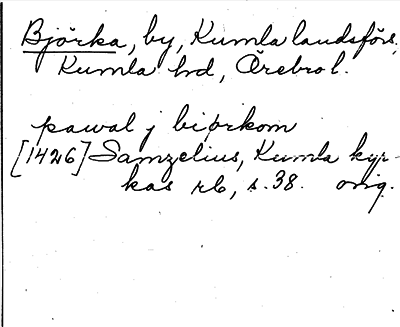 Björka, by, Kumla landsförs.
Kumla hd, Örebro l.
pawal j biørkom
[1426] Samzelius, Kumla kyr-
kas rb, s. 38. orig.